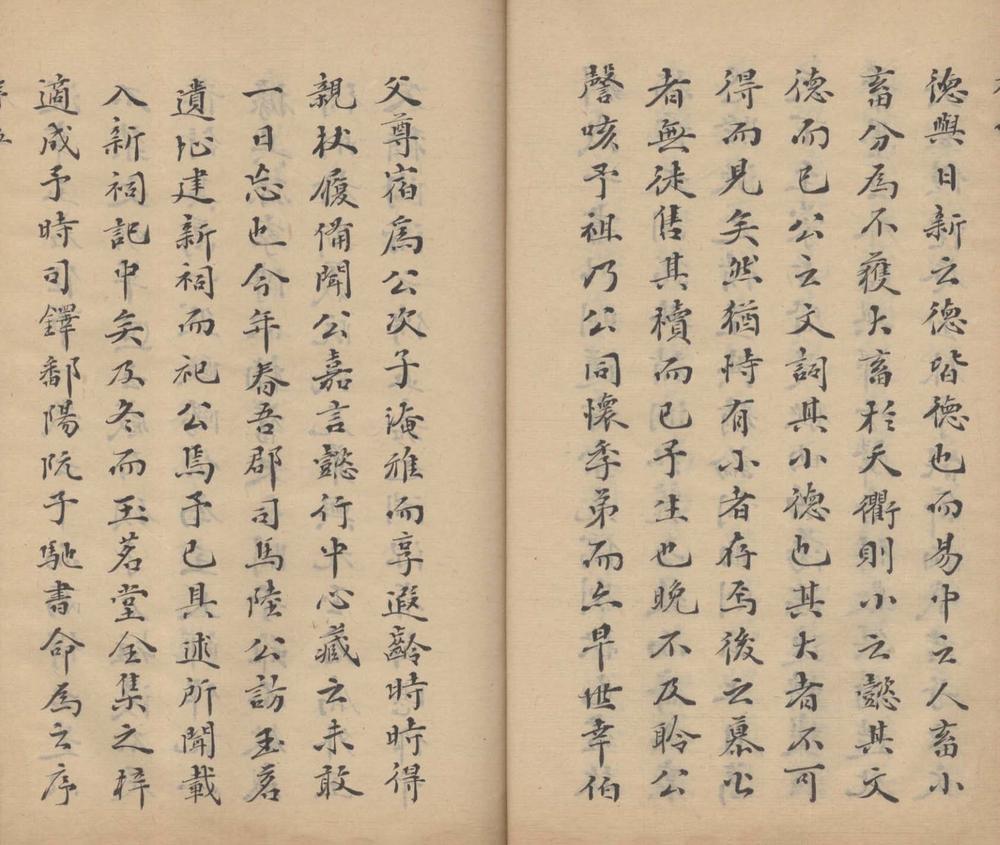 德與日新之德皆德也而易中之人畜小
畜分為不獲大畜於天衢則小之懿其文
德而已公之文詞其小德也其大者不可
得而見矣然猶恃有小者存焉後之慕公
者無徒售其櫝而已予生也晚不及聆公
謦咳予祖乃公同懷季弟而亦早世幸伯
父尊宿為公次子淹雅而享遐齡時時得
親杖履備聞公嘉言懿行中心藏之未敢
一日忘也今年春吾郡司馬陸公訪玉茗
遺址建新祠而祀公焉予已具述所聞載
入新祠記中矣及冬而玉茗堂全集之梓
適成予時司鐸鄱陽阮子馳書命為之序